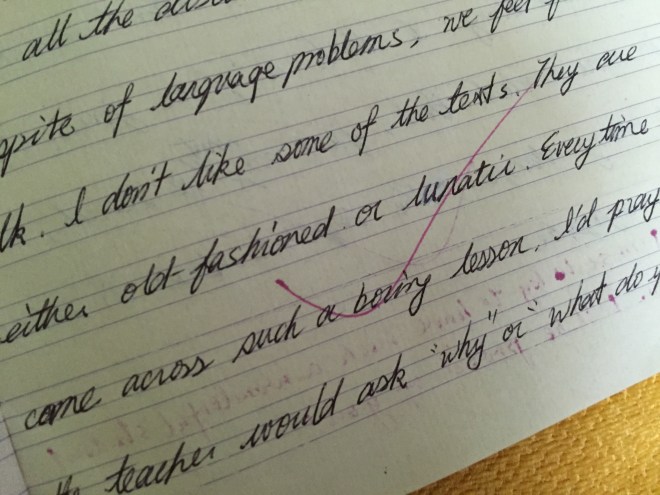 all the
spite of language problems, we feel
lk. I don't like some of the texts. They are
either old-fashioned or lunatic. Everytime
come across such a boring lesson, I'd pray
the teacher would ask "why" or "what do y